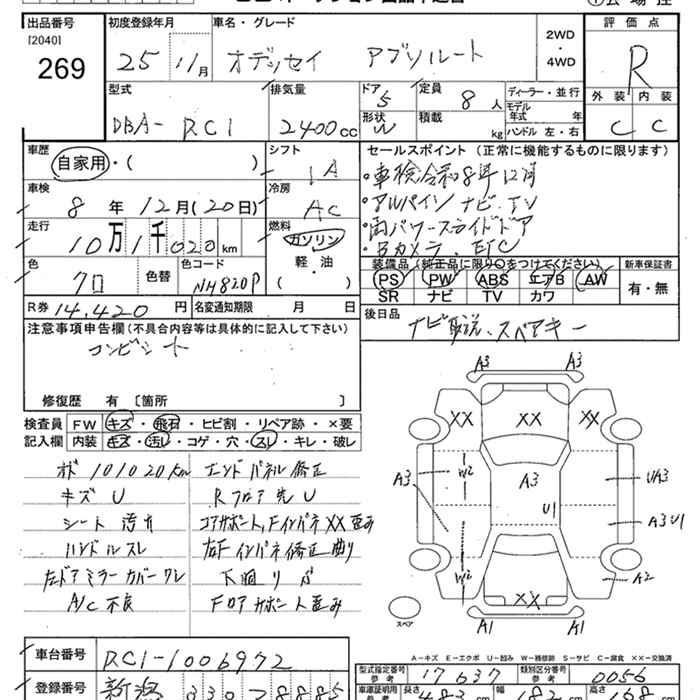 出品番号 初度登録年月 車名・グレード 評価点
[2040]
269
25 11月 オデッセイ アブソルート
2WD
・
4WD
R
型式 排気量 ドア 定員 ディーラー・並行 外装 内装
5 8人 モデル年式 年式
DBA- RC1 2400cc 形状 W 積載 kg ハンドル 左・右 C C
車歴 自家用・( ) シフト IA セールスポイント (正常に機能するものに限ります)
・車検令和8年12月
車検 8年12月(20日) 冷房 AC ・アルパインナビ.TV
・両パワースライドドア
走行 10万1千020km 燃料 ガソリン ・Bカメラ.ETC
軽・油
( )
装備品 (純正品に限り○をつけてください) 新車保証書
色 クロ 色替 色コード NH820P PS PW ABS エアB AW 有・無
SR ナビ TV カワ
R券 14,420円 名変通知期限 月 日 後日品
ナビ取説、スペアキー
注意事項申告欄(不具合内容等は具体的に記入して下さい)
コンビシート
修復歴 有 [箇所 ]
検査員 FW キズ・飛石・ヒビ割・リペア跡・×要
記入欄 内装 キズ・汚し・コゲ・穴・スレ・キレ・破レ
オド 101020km エンドパネル修正
キズ U Rフロア先U
シート 汚れ コアサポート,Fインパネ XX歪み
ハンドルスレ 左Fインパネ修正曲り
左ドアミラーカバーワレ 下廻りサビ
A/C不良 Fロアサポート歪み
A3 A3
XX XX XX
A3 W2 A3 U1 UA3
A3U1
W2 A2
XX
A1 A1
スペア
A-キズ E-エクボ U-凹み W-補修跡 S-サビ C-腐食 XX-交換済
車台番号 RC1-1006972
型式指定番号 参考 17637 類別区分番号 参考 0056
登録番号 新潟 330 8885
車庫証明用 長さ 483cm 幅 182cm 168cm